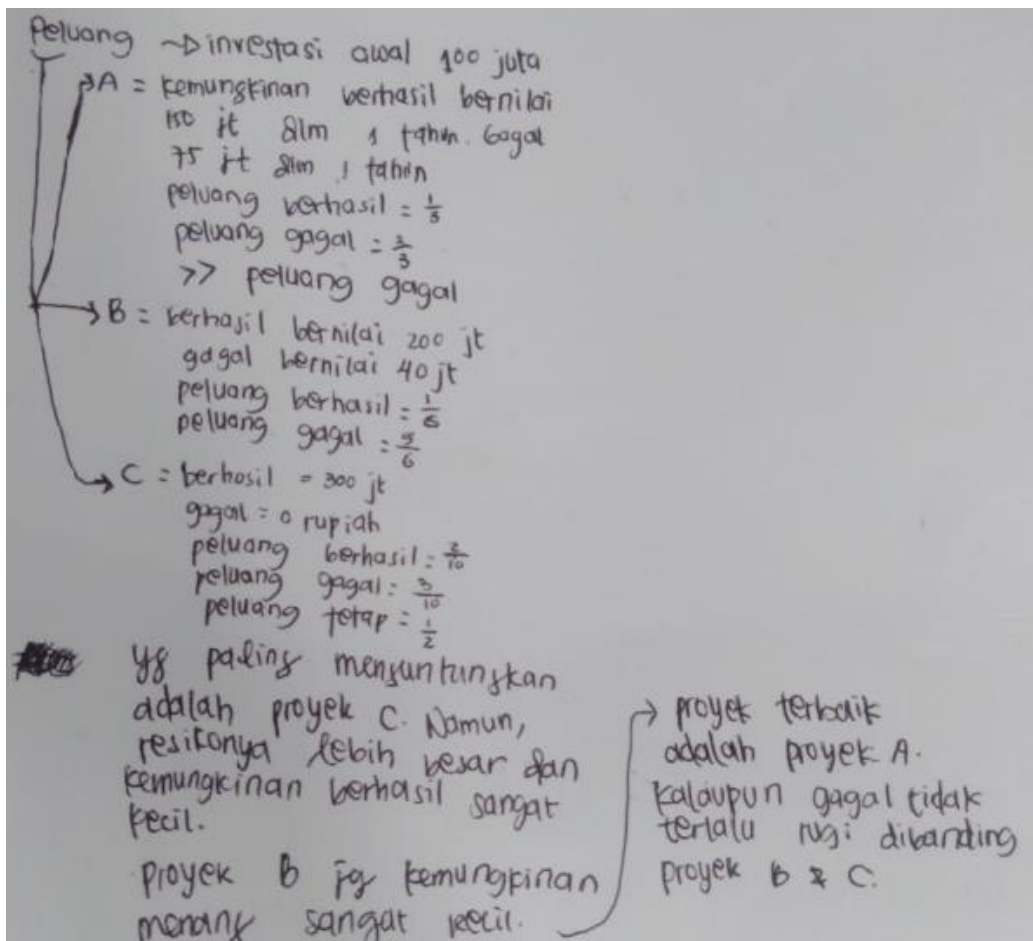 Peluang ~> investasi awal 100 juta
A = kemungkinan berhasil bernilai
150 jt dlm 1 tahun. Gagal
75 jt dlm 1 tahun
peluang berhasil = 1/3
peluang gagal = 2/3
>> peluang gagal
B = berhasil bernilai 200 jt
gagal bernilai 40 jt
peluang berhasil = 1/6
peluang gagal = 5/6
C = berhasil = 300 jt
gagal = 0 rupiah
peluang berhasil = 2/10
peluang gagal = 3/10
peluang tetap = 1/2
yg paling menguntungkan
adalah proyek C. Namun,
resikonya lebih besar dan
kemungkinan berhasil sangat
kecil.
proyek B jg kemungkinan
menang sangat kecil.
→ proyek terbaik
adalah proyek A.
Kalaupun gagal tidak
terlalu rugi dibanding
proyek B & C.